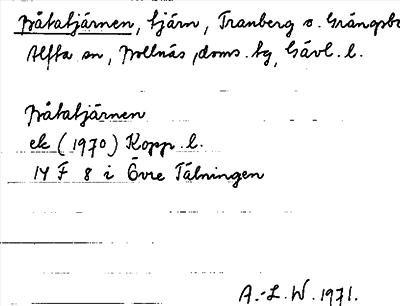 Båtatjärnen, tjärn, Tranberg o. Grängsbo
Alfta sn, Bollnäs doms. tg, Gävl. l.
Båtatjärnen
ek (1970) Kopp. l.
14 F 8 i Övre Tälningen
A.-L. W. 1971.